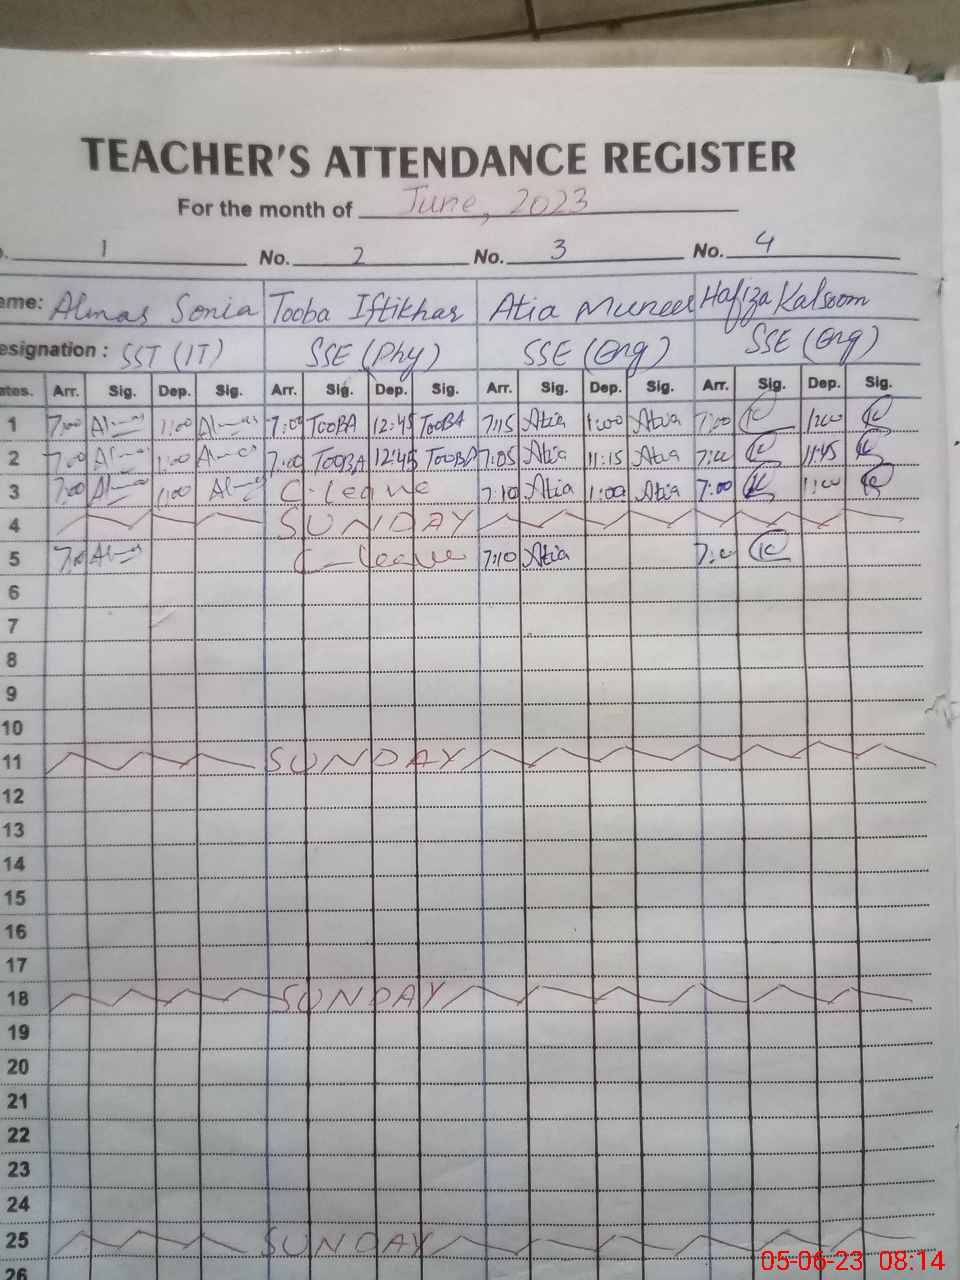 TEACHER'S ATTENDANCE REGISTER
For the month of June, 2023
1 No. 2 No. 3 No. 4
ame: Almas Sonia Tooba Iftikhar Atia Muneer Hafiza Kalsoom
esignation : SST (IT) SSE (Phy) SSE (Eng) SSE (Eng)
ates. Arr. Sig. Dep. Sig. Arr. Sig. Dep. Sig. Arr. Sig. Dep. Sig. Arr. Sig. Dep. Sig.
1 7:00 1:00 7:00 TOOBA 12:45 TOOBA 7:15 Atia 1:00 Atia 7:00 1:00
2 7:00 1:00 7:00 TOOBA 12:45 TOOBA 7:05 Atia 11:15 Atia 7:00 11:45
3 7:00 1:00 C-leave 7:10 Atia 1:00 Atia 7:00 1:00
4 SUNDAY
5 7:0 C-leave 7:10 Atia 7:00
6
7
8
9
10
11 SUNDAY
12
13
14
15
16
17
18 SUNDAY
19
20
21
22
23
24
25 SUNDAY
26
05-06-23 08:14